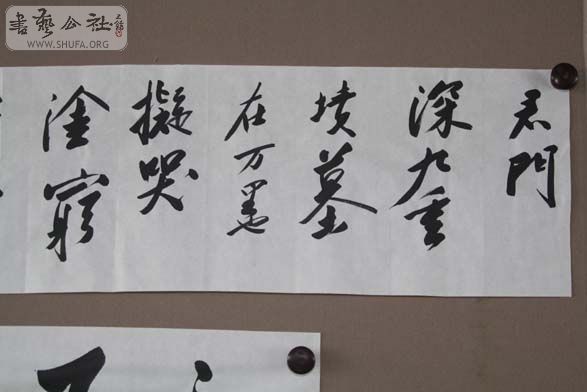 書藝公社
WWW.SHUFA.ORG
君門
深九重
墳墓
在万里也
擬哭
塗窮